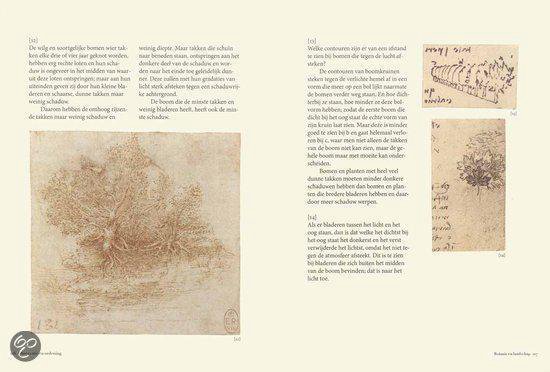 [12]
De wilg en soortgelijke bomen wier tak-
ken elke drie of vier jaar geknot worden,
hebben erg rechte loten en hun scha-
duw is ongeveer in het midden van waar-
uit deze loten ontspringen; maar aan hun
uiteinden geven zij door hun kleine bla-
deren en schaarse, dunne takken maar
weinig schaduw.
Daarom hebben de omhoog rijzen-
de takken maar weinig schaduw en
weinig diepte. Maar takken die schuin
naar beneden staan, ontspringen aan het
donkere deel van de schaduw en wor-
den naar het einde toe geleidelijk dun-
ner. Deze zullen met hun gradaties van
licht sterk afsteken tegen een schaduwrij-
ke achtergrond.
De boom die de minste takken en
weinig bladeren heeft, heeft ook de min-
ste schaduw.
[12]
[13]
Welke contouren zijn er van een afstand
te zien bij bomen die tegen de lucht af-
steken?
De contouren van boomkruinen
steken tegen de verlichte hemel af in een
vorm die meer op een bol lijkt naarmate
de bomen verder weg staan; En hoe dich-
terbij ze staan, hoe minder ze deze bol-
vorm hebben; zodat de eerste boom die
dicht bij het oog staat de echte vorm van
zijn kruin laat zien. Maar deze is minder
goed te zien bij b en gaat helemaal verlo-
ren bij c, waar men niet alleen de takken
van de boom niet kan zien, maar de ge-
hele boom maar met moeite kan onder-
scheiden.
Bomen en planten met heel veel
dunne takken moeten minder donkere
schaduwen hebben dan bomen en plan-
ten die bredere bladeren hebben en daar-
door meer schaduw werpen.
[14]
Als er bladeren tussen het licht en het
oog staan, dan is dat welke het dichtst bij
het oog staat het donkerst en het verst
verwijderde het lichtst, omdat het niet te-
gen de atmosfeer afsteekt. Dit is te zien
bij bladeren die zich buiten het midden
van de boom bevinden; dat is naar het
licht toe.
[13]
[14]
Botanie en landschap 107